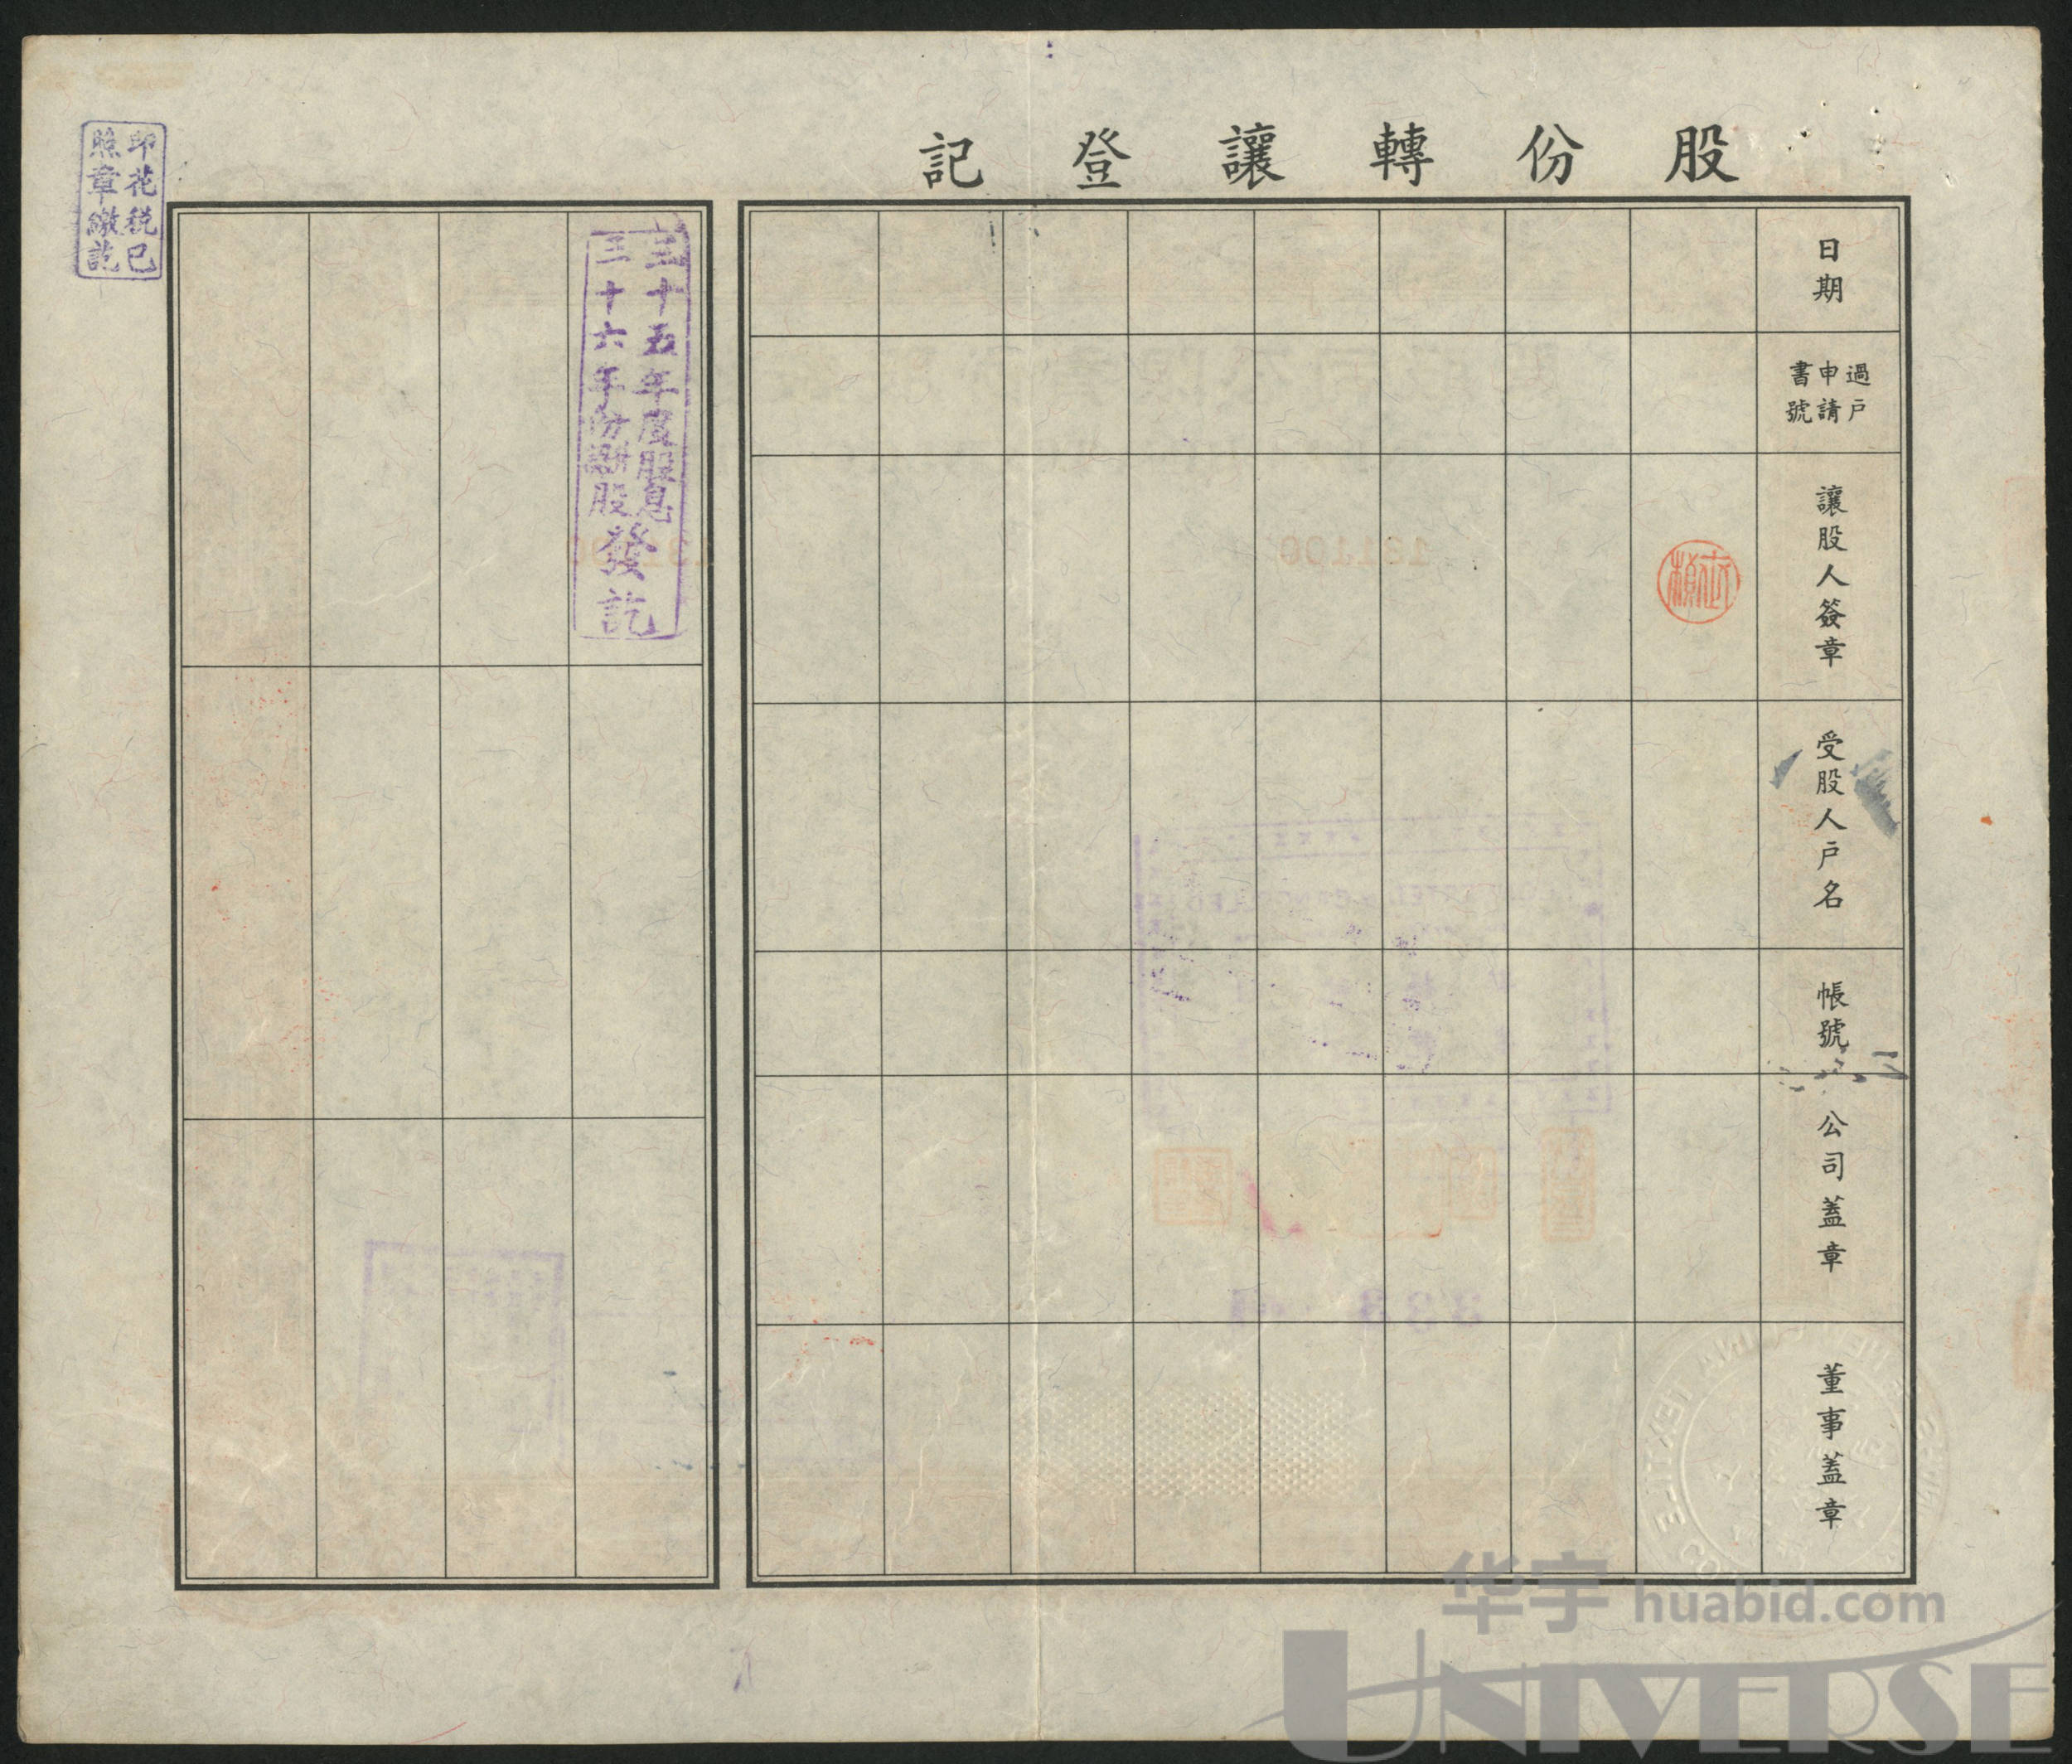 股份轉讓登記
日期
過戶
申請
書號
讓股人簽章
受股人戶名
帳號
公司蓋章
董事蓋章
三十五年度股息
三十六年份
股
發訖
印花稅已
照章繳訖
131100
华宇 huabid.com
UNIVERSE